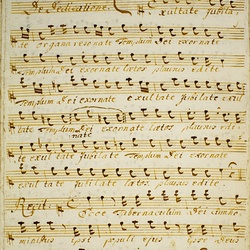 De Dedicatione. Exultate jubila
te organa resonate Templum Dei exornate
Templum Dei exornate laetos plausus edite
Templum Dei exornate exultate jubilate exul
tate Templum Dei exornate laetos plausus edi
te exultate jubilate Templum Dei exornate
exultate jubilate laetos plausus edite.
Recit: Ecce Tabernaculum Dei cum ho
minibus ipsi populi ejus ipse Deus